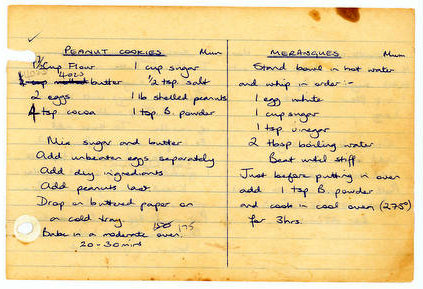 PEANUT COOKIES Mum
1½ cup Flour 1 cup sugar
4ozs butter ½ tsp. salt
2 eggs 1 lb shelled peanuts
4 tsp cocoa 1 tsp B. powder
Mix sugar and butter
Add unbeaten eggs separately
Add dry ingredients
Add peanuts last.
Drop on buttered paper on
on cold tray.
Bake in a moderate oven. 150 175
20-30 mins
MERANGUES Mum
Stand bowl in hot water
and whip in order:-
1 egg white
1 cup sugar
1 tsp. vinegar
2 tbsp boiling water
Beat until stiff.
Just before putting in oven
add 1 tsp B. powder
and cook in cool oven (275°)
for 3hrs.